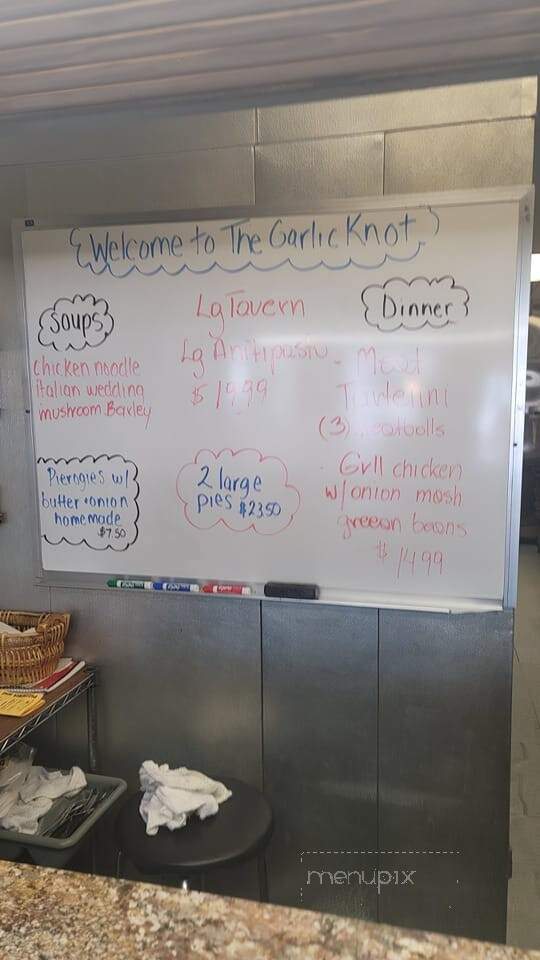 Welcome to The Garlic Knot
Soups
Chicken noodle
italian wedding
mushroom. Barley
Pierogies w/
butter + onion
homemade
$7.50
Lg Tavern
Lg Anitipasto
$19.99
2 large
pies $23.50
Dinner
- Meat
(3)
- Grll chicken
w/onion mash
greeon beans
$14.99
menupix